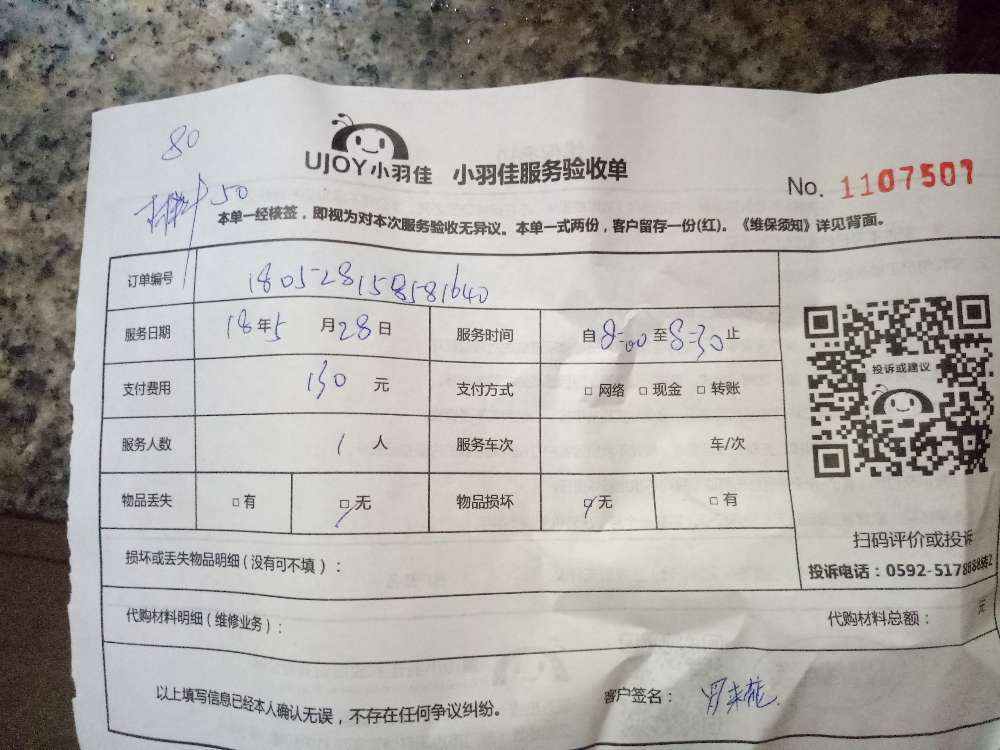 80
50
UJOY小羽佳 小羽佳服务验收单
No. 1107507
本单一经核签，即视为对本次服务验收无异议。本单一式两份，客户留存一份(红)。《维保须知》详见背面。
订单编号 180528158581640
服务日期 18年5月28日 服务时间 自8:00至8:30止
支付费用 130元 支付方式 □网络 □现金 □转账
服务人数 1人 服务车次 车/次
物品丢失 □有 □无 物品损坏 □无 □有
投诉或建议
扫码评价或投诉
投诉电话：0592-5178888转2
损坏或丢失物品明细（没有可不填）：
代购材料明细（维修业务）： 代购材料总额： 元
以上填写信息已经本人确认无误，不存在任何争议纠纷。 客户签名：